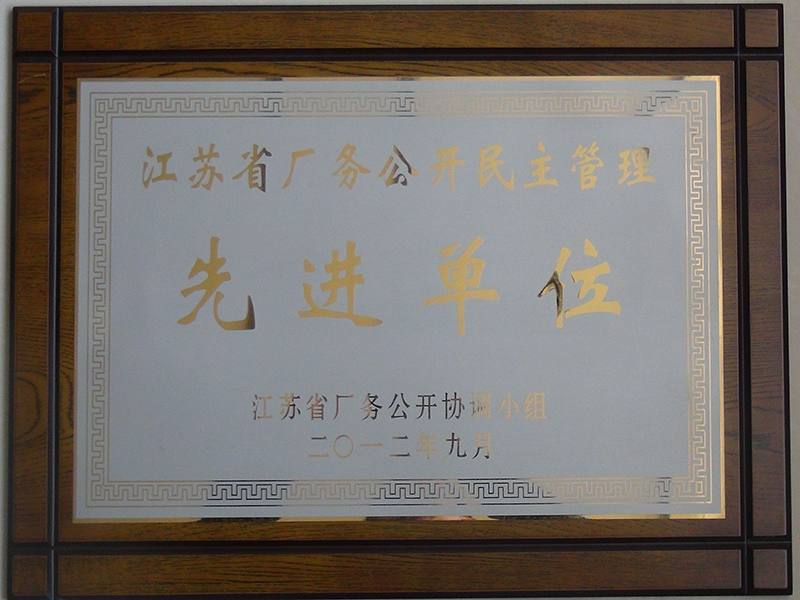 江苏省厂务公开民主管理
先进单位
江苏省厂务公开协调小组
二〇一二年九月